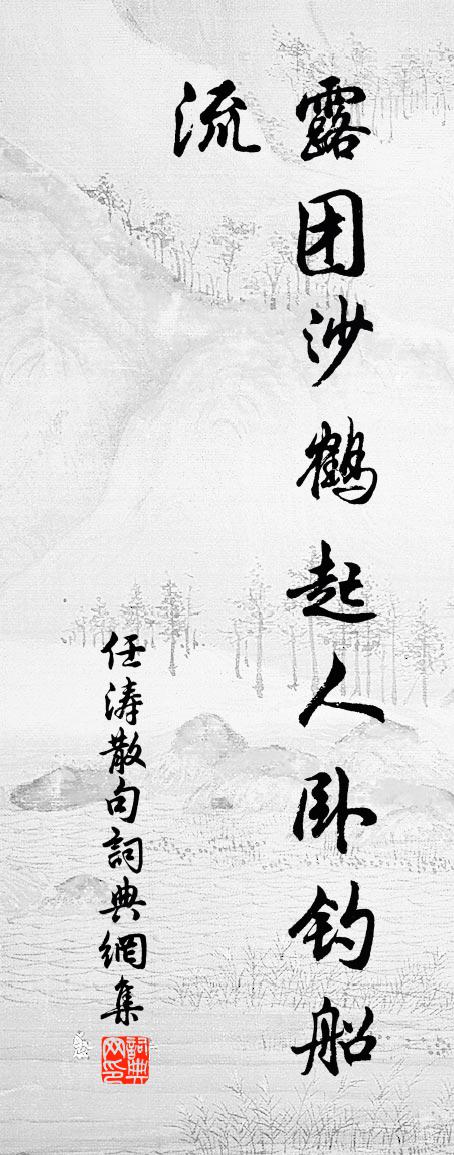 露团沙鹤起人卧钓船
流
任涛散句詞典網集
詞典网印